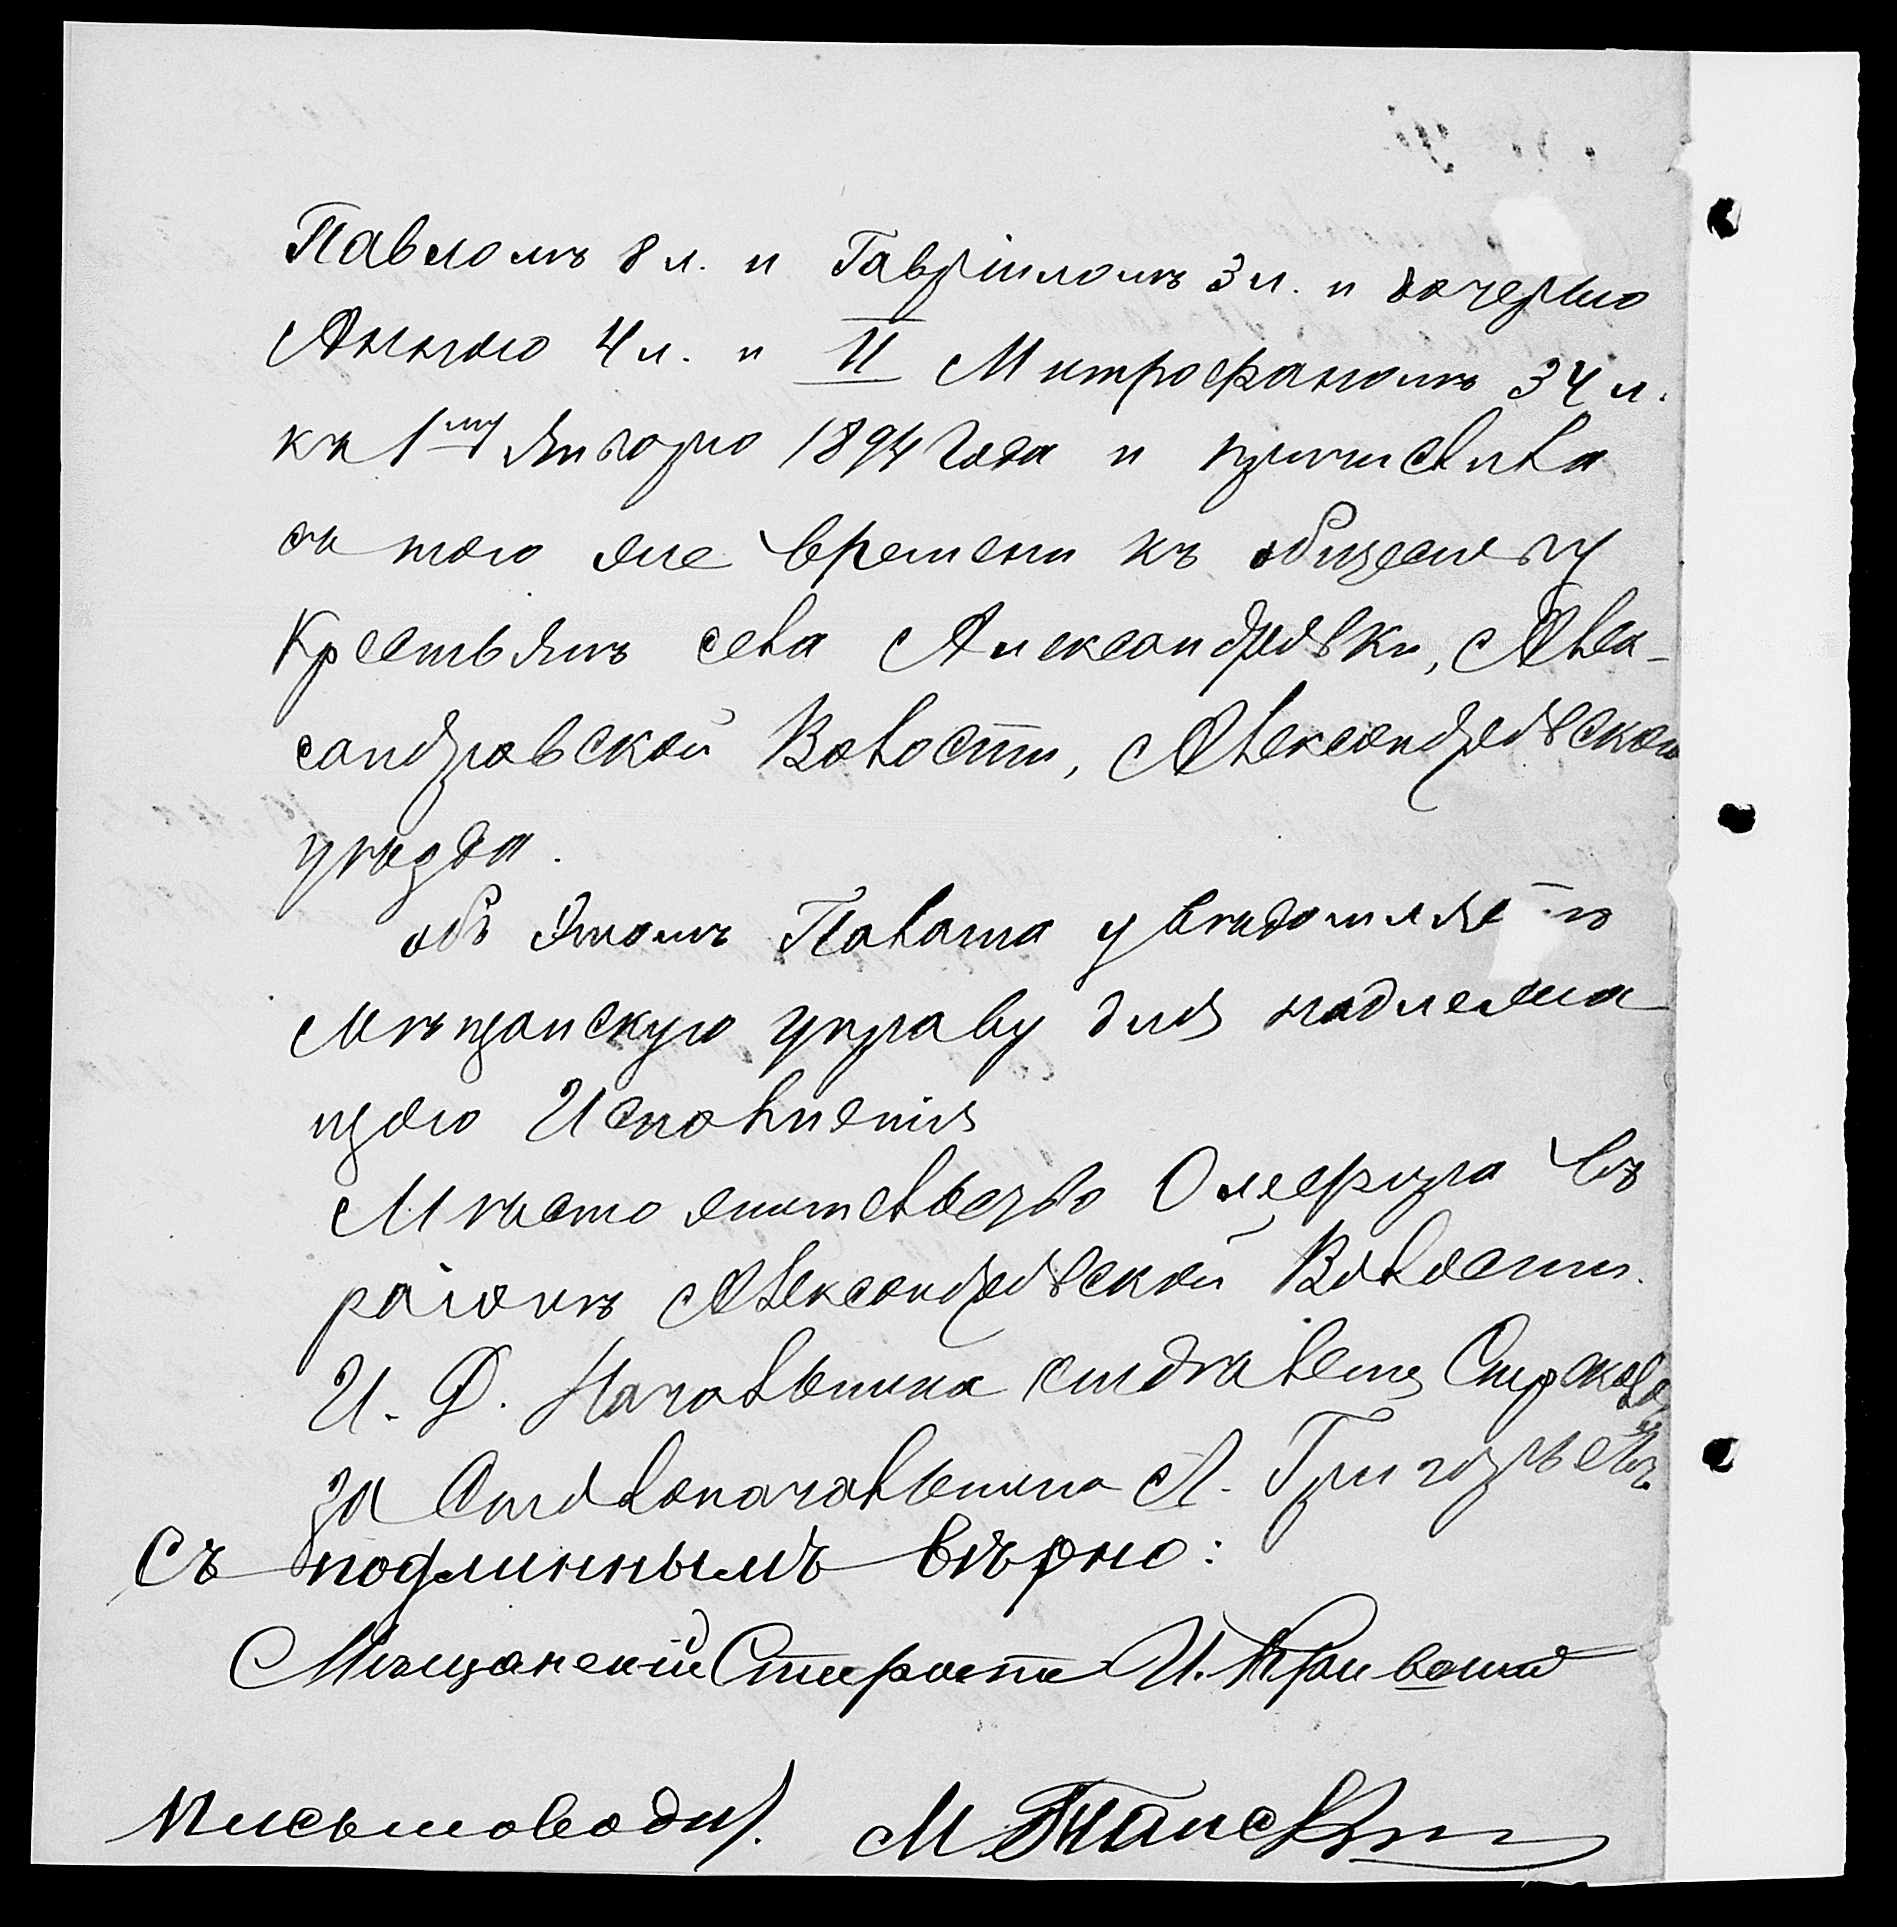 Павломъ 8 л. и Гавріиломъ 3 л. и дочерью
Анною 4 л. и II Митрофаномъ 34 л.
къ 1му Января 1894 года и причислила
съ того же времени къ обществу
Крестьянъ села Александровки, Алек-
сандровской Волости, Александровскаго
уѣзда.
объ этомъ Палата увѣдомляетъ
Мѣщанскую управу для надлежа
щаго Исполненія
Мѣсто жительство Олефира въ
районѣ Александровской Волости.
И. Д. Начальника отдѣленія
за Столоначальника А. Григорьевъ
Съ подлиннымъ вѣрно:
Мѣщанскій Староста И.
Письмовод. М.